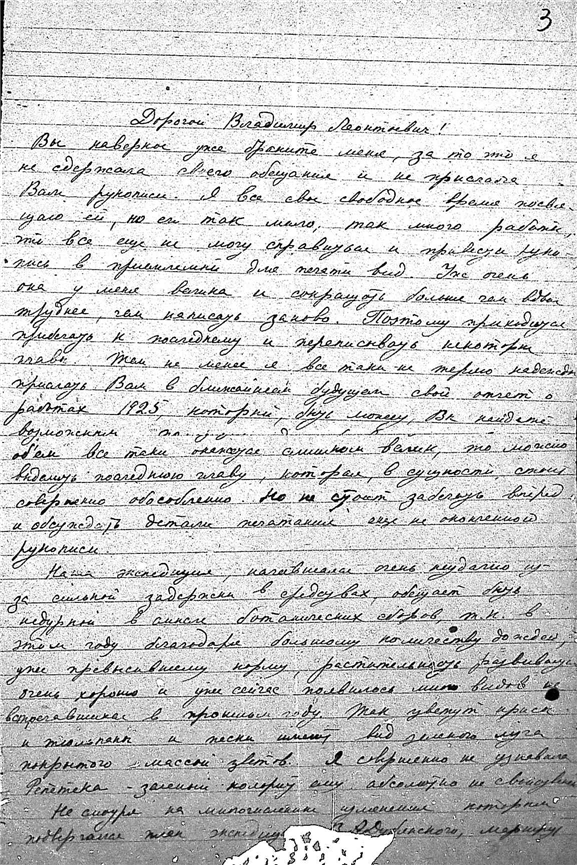 3
Дорогой Владимир Леонтьевич!
Вы наверное уже браните меня, за то что я
не сдержала своего обещания и не прислала
Вам рукописи. Я все свое свободное время посвя-
щаю ей, но его так мало, так много работы,
что все еще не могу справиться и привести руко-
пись в приемлемый для печати вид. Уж очень
она у меня велика и сокращать больше чем вдвое
труднее, чем написать заново. Поэтому приходится
прибегать к последнему и переписывать некоторые
главы Тем не менее я все таки не теряю надежды
прислать Вам в ближайшем будущем свой отчет о
работах 1925 который, быть может, Вы найдете
возможным
объем все таки окажется слишком велик, то можно
выделить последнюю главу, которая, в сущности, стоит
совершенно обособленно. Но не стоит забегать вперед
и обсуждать детали печатания еще не оконченной
рукописи.
Наша экспедиция, начавшаяся очень неудачно из-
за сильной задержки в средствах, обещает быть
недурной в смысле ботанических сборов, т.к. в
этом году благодаря большому количеству дождей,
уже превысившему норму, растительность развивается
очень хорошо и уже сейчас появилось мно видов не
встречавшихся в прошлом году. Так цветут ирисы
и тюльпаны и пески имеют вид зеленого луга
покрытого массой цветов. Я совершенно не узнавала
Репетека - зеленый колорит ему абсолютно не свойственен
Не смотря на многочисленные изменения которым
подвергался план экспедиции Дубянского, маршрут